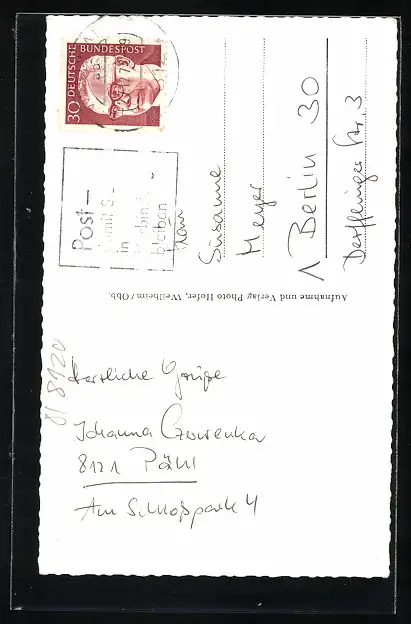 Herzliche Grüße
Johanna Czowenka
8121 Pähl
Am Schloßpark 4
8/8120
Aufnahme und Verlag: Photo Hofer, Weilheim/Obb.
30 DEUTSCHE BUNDESPOST
Post—
damit S-
in
Verbin
bleiben
Frau
Susanne
Meyer
1 Berlin 30
Derfflinger Str. 3